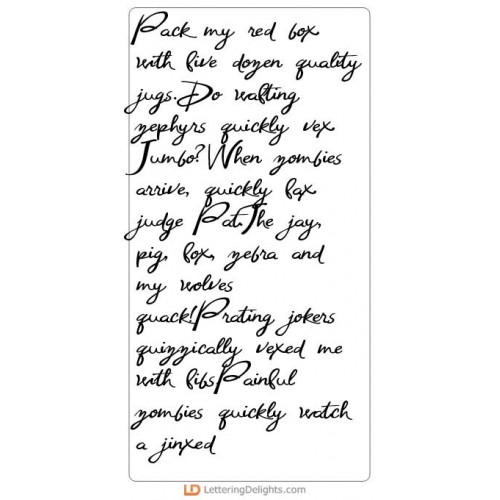 Pack my red box
with five dozen quality
jugs. Do wafting
zephyrs quickly vex
Jumbo? When zombies
arrive, quickly fax
judge Pat. The jay,
pig, fox, zebra and
my wolves
quack! Prating jokers
quizzically vexed me
with fibs Painful
zombies quickly watch
a jinxed
LD LetteringDelights.com